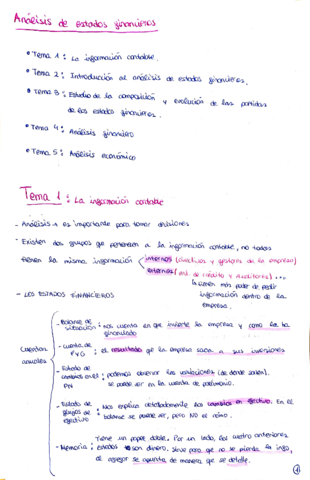 Análisis de estados financieros
• Tema 1: La información contable.
• Tema 2: Introducción al análisis de estados financieros.
• Tema 3: Estudio de la composición y evolución de las partidas
de los estados financieros.
• Tema 4: Análisis financiero
• Tema 5: Análisis económico
Tema 1: La información contable
- Análisis → es importante para tomar decisiones
- Existen dos grupos que pertenecen a la información contable, no todos
tienen la misma información
internos (directivos y gestores de la empresa)
externos (ent. de crédito y auditores) ...
la tienen más poder de pedir
información dentro de la
empresa.
- LOS ESTADOS FINANCIEROS
Cuentas
anuales
- Balance de
situación: nos cuenta en que invierte la empresa y como lo ha
financiado
- Cuenta de
PyG: el resultado que la empresa saca a sus inversiones
- Estado de
cambios en el
PN: podemos observar las variaciones (de donde salen).
se puede ver en la cuenta de patrimonio.
- Estado de
flujos de
efectivo: Nos explica detalladamente los cambios en efectivo. En el
balance se puede ver, pero NO el cómo.
- Memoria: Tiene un papel doble. Por un lado, los cuatro anteriores
estados son dinero, sirve para que no se pierda la info,
al agregar se apunta de manera que se detalle.
1